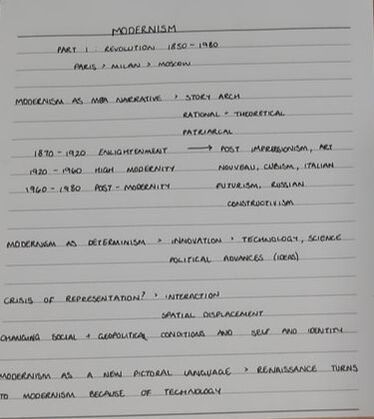 MODERNISM
PART 1 : REVOLUTION 1850 - 1980
PARIS > MILAN > MOSCOW
MODERNISM AS META NARRATIVE > STORY ARCH
RATIONAL + THEORETICAL
PATRIARCAL
1870 - 1920 ENLIGHTENMENT → POST IMPRESSIONISM, ART
1920 - 1960 HIGH MODERNITY NOUVEAU, CUBISM, ITALIAN
1960 - 1980 POST - MODERNITY FUTURISM, RUSSIAN
CONSTRUCTIVISM
MODERNISM AS DETERMINISM > INNOVATION > TECHNOLOGY, SCIENCE
POLITICAL ADVANCES (IDEAS)
CRISIS OF REPRESENTATION? > INTERACTION
SPATIAL DISPLACEMENT
CHANGING SOCIAL + GEOPOLITICAL CONDITIONS AND SELF AND IDENTITY
MODERNISM AS A NEW PICTORAL LANGUAGE > RENAISSANCE TURNS
TO MODERNISM BECAUSE OF TECHNOLOGY